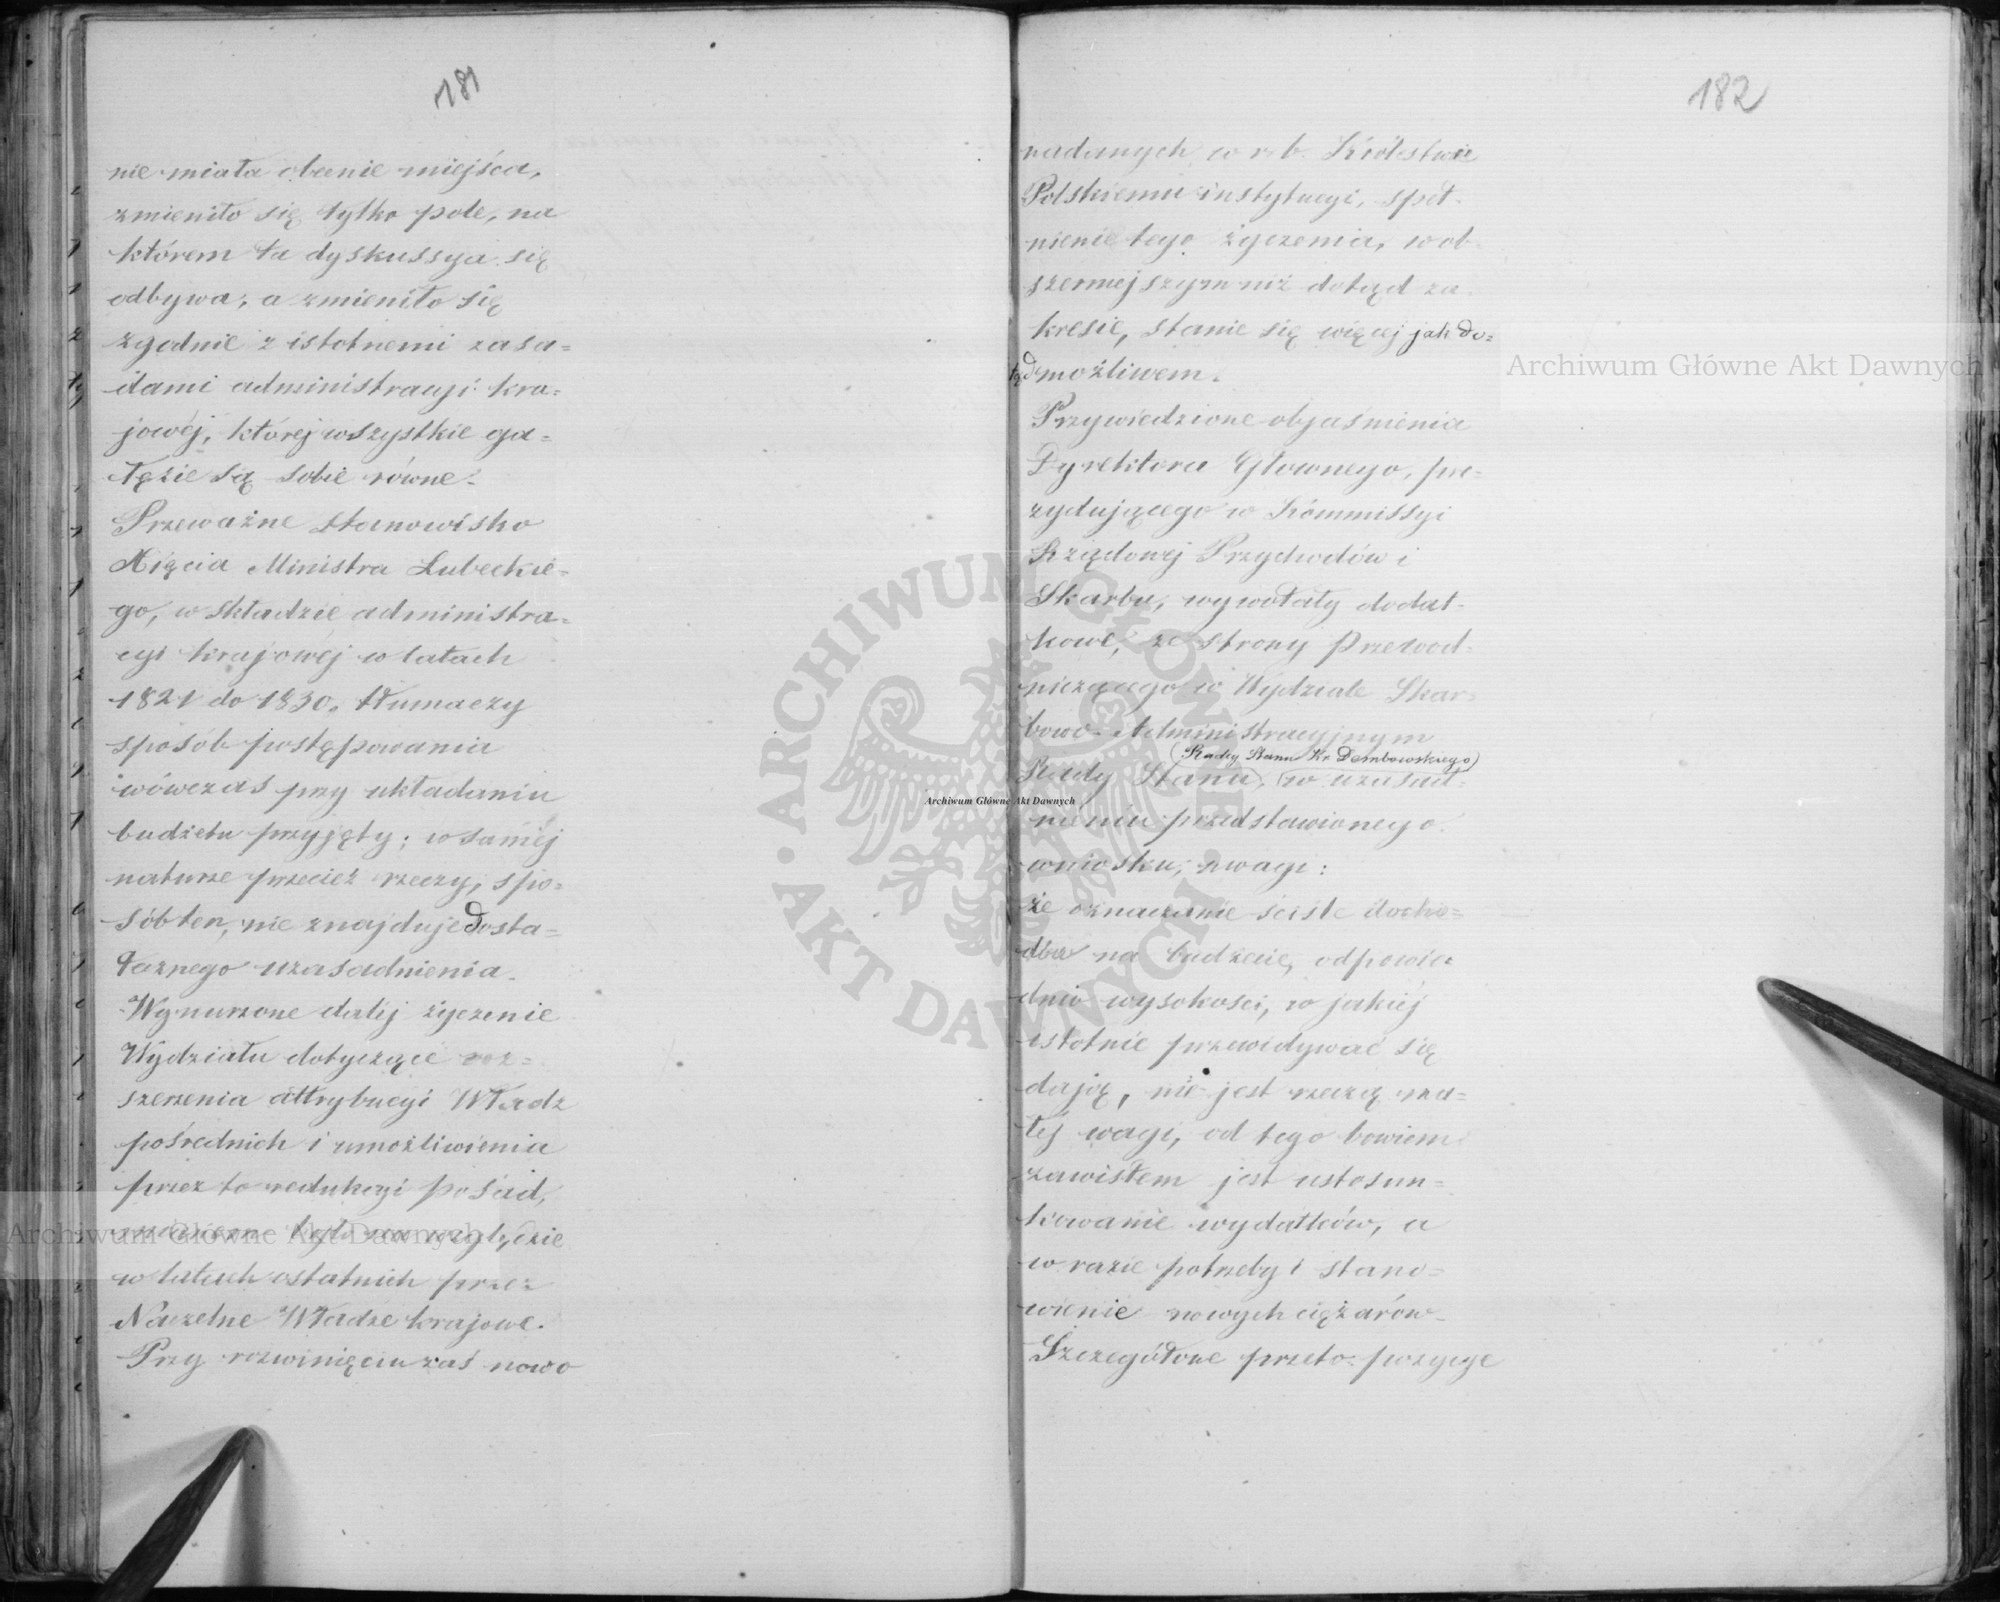 181
nie miała obecnie miejsca,
zmieniło się tylko pole, na
którem ta dyskussya się
odbywa, a zmieniło się
zgodnie z istotnemi zasa=
dami administracyi kra=
jowéj, której wszystkie ga=
łęzie są sobie równe.
Przeważne stanowisko
Xięcia Ministra Lubeckie=
go, w składzie administra=
cyi krajowéj w latach
1821 do 1830, tłumaczy
sposób postępowania
wówczas przy układaniu
budżetu przyjęty; w saméj
naturze przecież rzeczy, spo=
sób ten, nie znajduje dosta=
tecznego uzasadnienia.
Wynurzone daléj życzenie
Wydziału dotyczące roz=
szerzenia attrybucyi Władz
pośrednich i umożliwienia
przez to redukcyi posad,
mianem było na względzie
w latach ostatnich przez
Naczelne Władze krajowe.
Przy rozwinięciu zaś nowo
182
nadanych w r. b. Królestwu
Polskiemu instytucyi, speł-
nienie tego życzenia, w ob-
szerniejszym niż dotąd za-
kresie, stanie się więcej jak do=
tąd możliwem.
Przywiedzione objaśnienia
Dyrektora Głównego, pre-
zydującego w Kommissyi
Rządowej Przychodów i
Skarbu, wywołały dodat-
kowe, ze strony Przewod-
niczącego w Wydziale Skar-
bowo-Administracyjnym
(Radcy Stanu Kr. Dembowskiego)
Rady Stanu, w uzasad-
nieniu przedstawionego
wniosku, uwagi:
że oznaczenie ściśle docho=
dów na budżecie, odpowie=
dnio wysokości, w jakiéj
istotnie przewidywać się
dają, nie jest rzeczą ma=
łéj wagi, od tego bowiem
zawisłem jest ustosun=
kowanie wydatków, a
w razie potrzeby i stano=
wienie nowych ciężarów.
Szczegółowe przeto pozycye
Archiwum Główne Akt Dawnych
Archiwum Główne Akt Dawnych
Archiwum Główne Akt Dawnych
ARCHIWUM GŁÓWNE · AKT DAWNYCH ·